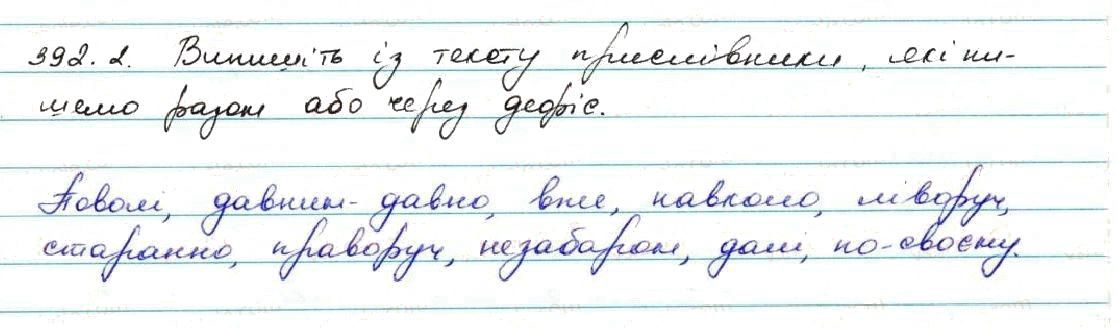 392.2. Випишіть із тексту прислівники, які пи-
шемо разом або через дефіс.
Поволі, давним-давно, вже, навколо, ліворуч,
старанно, праворуч, незабаром, далі, по-своєму.